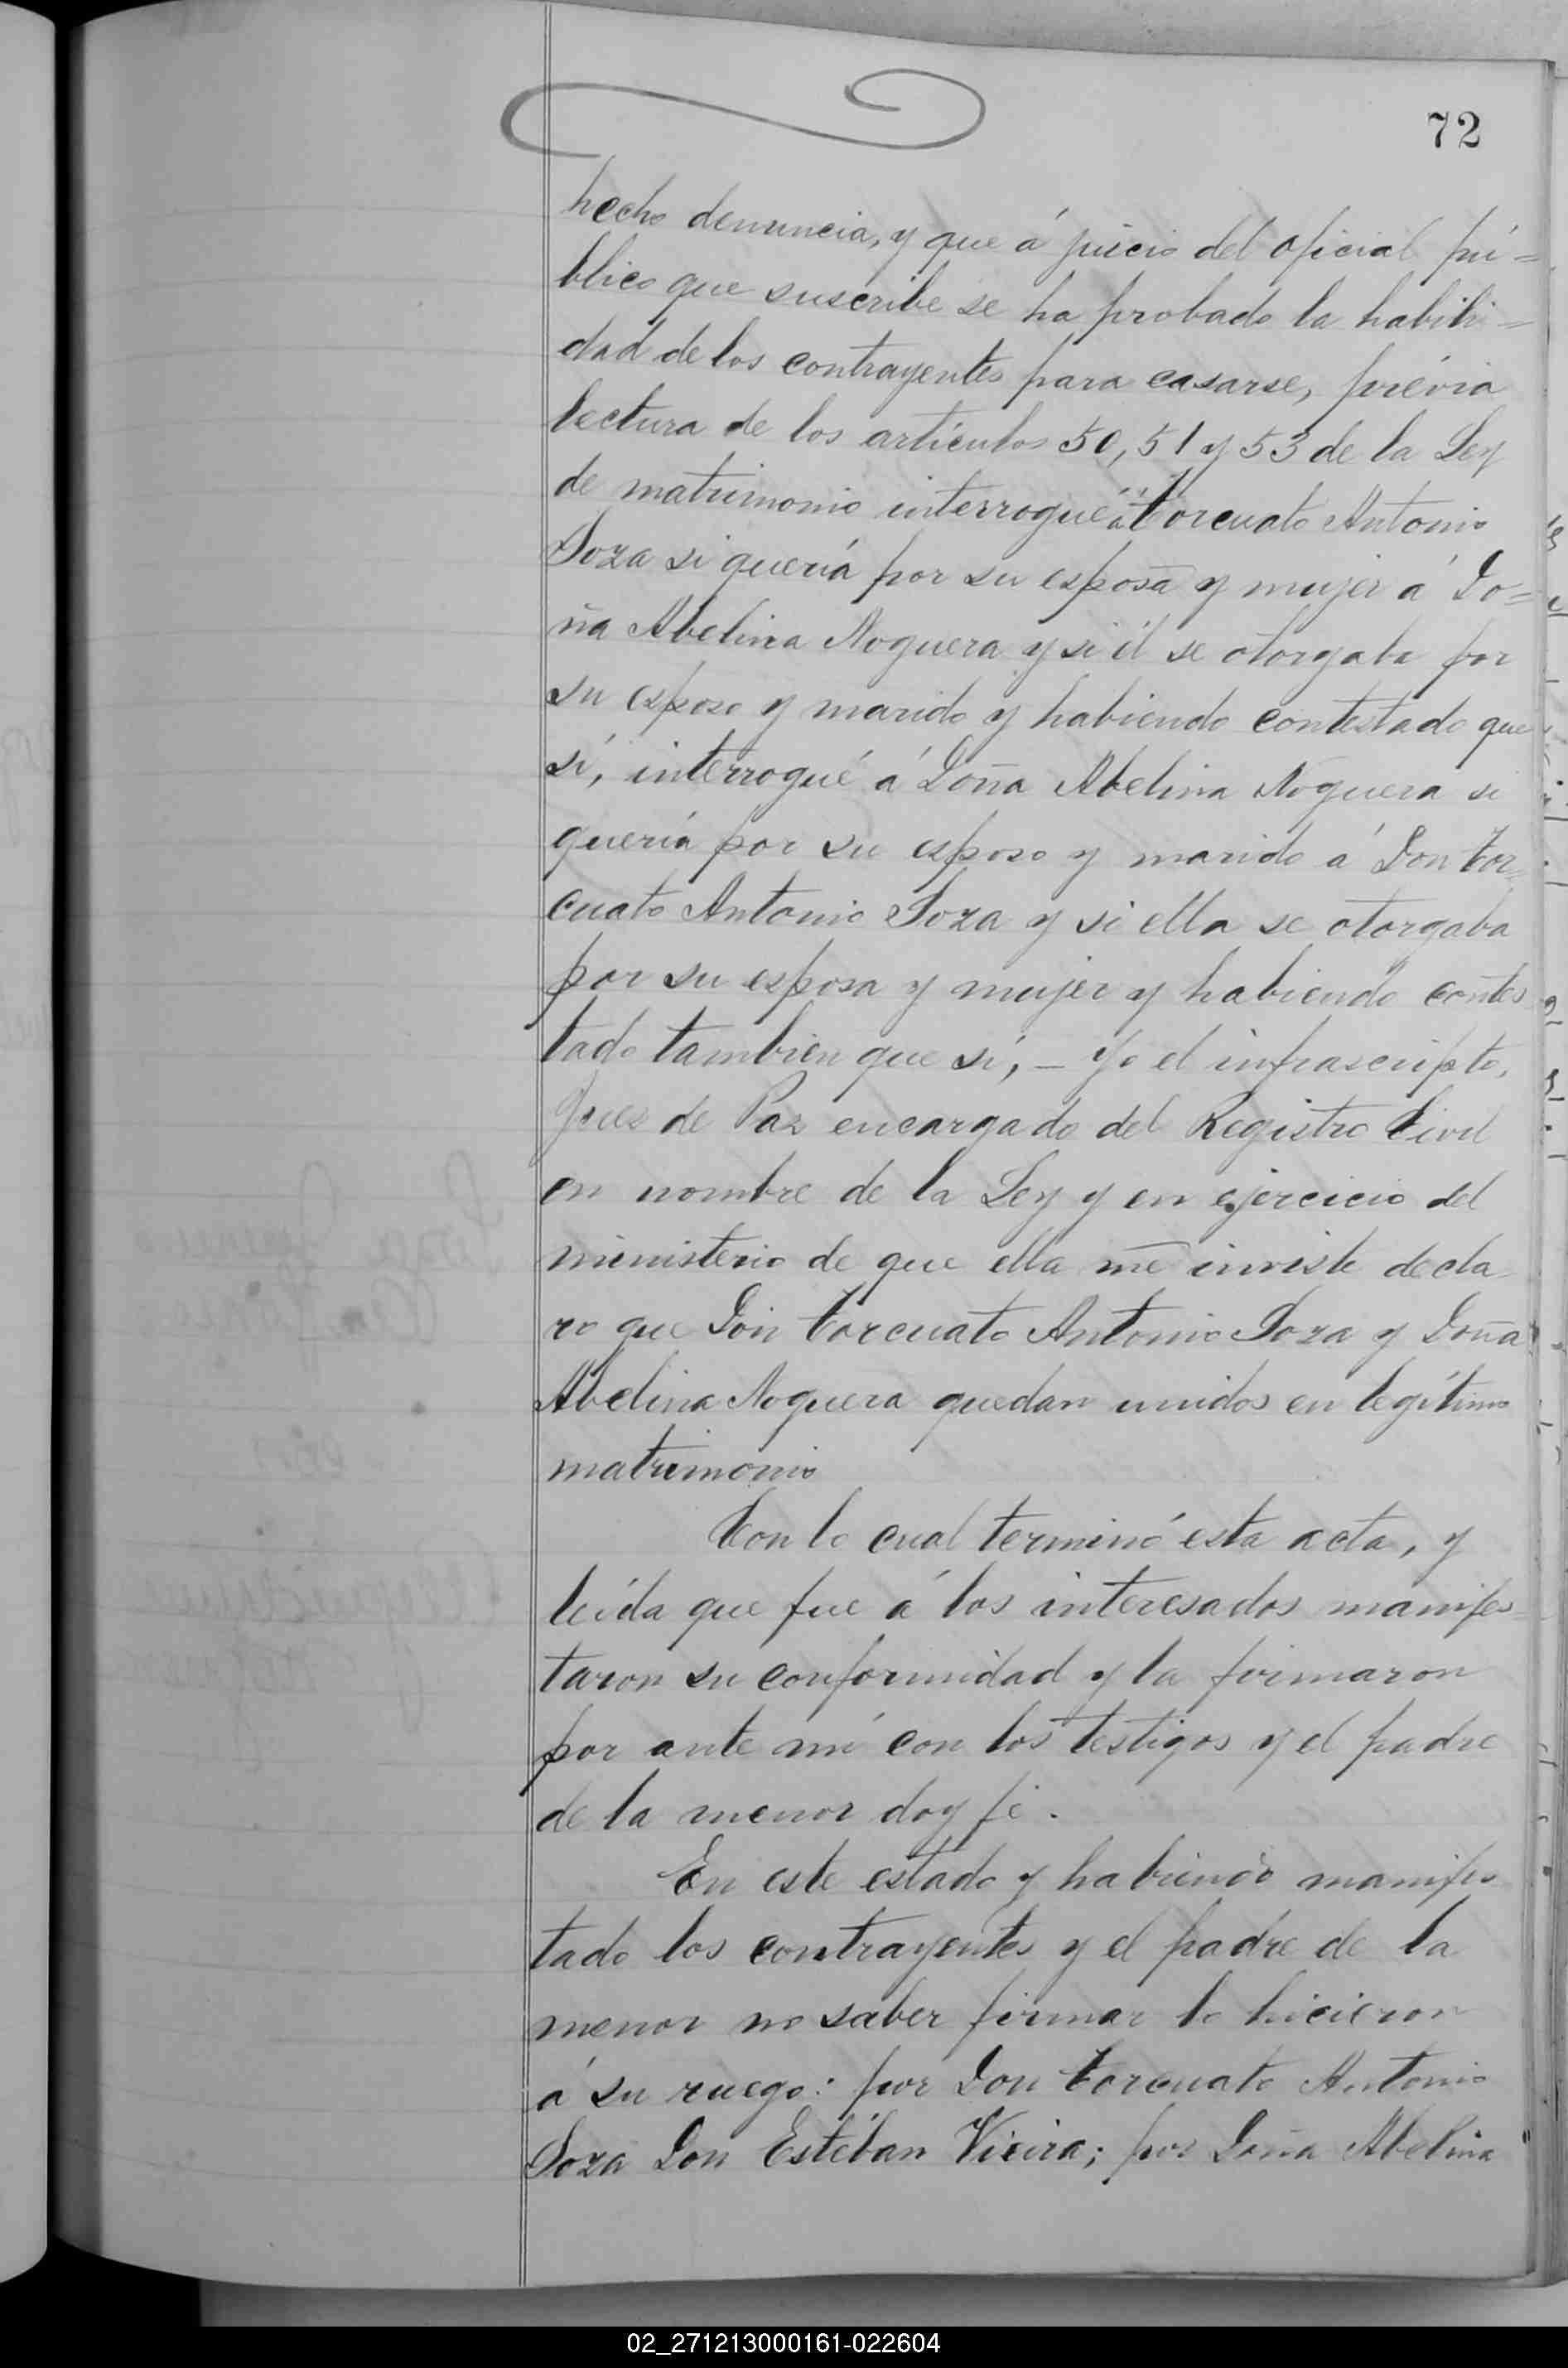 72
hecho denuncia, y que á juicio del oficial pú=
blico que suscribe se ha probado la habili=
dad de los contrayentes para casarse, prévia
lectura de los artículos 50, 51 y 53 de la Ley
de matrimonio interrogué a Torcuato Antonio
Soza si quería por su esposa y mujer á Do=
ña Abelina Noguera y si él se otorgaba por
su esposo y marido y habiendo contestado que
sí, interrogué á Doña Abelina Noguera si
quería por su esposo y marido á Don Tor=
cuato Antonio Soza y si ella se otorgaba
por su esposa y mujer y habiendo contes
tado tambien que sí, – Yo el infrascripto,
Juez de Paz encargado del Registro Civil
en nombre de la Ley y en ejercicio del
ministerio de que ella me inviste decla
ro que Don Torcuato Antonio Soza y Doña
Abelina Noguera quedan unidos en legítimo
matrimonio
Con lo cual terminó esta acta, y
leída que fue á los interesados manifes
taron su conformidad y la firmaron
por ante mí con los testigos y el padre
de la menor doy fé.
En este estado y habiendo manifes
tado los contrayentes y el padre de la
menor no saber firmar lo hicieron
á su ruego: por Don Torcuato Antonio
Soza Don Estéban Vieira; por Doña Abelina
02_271213000161-022604